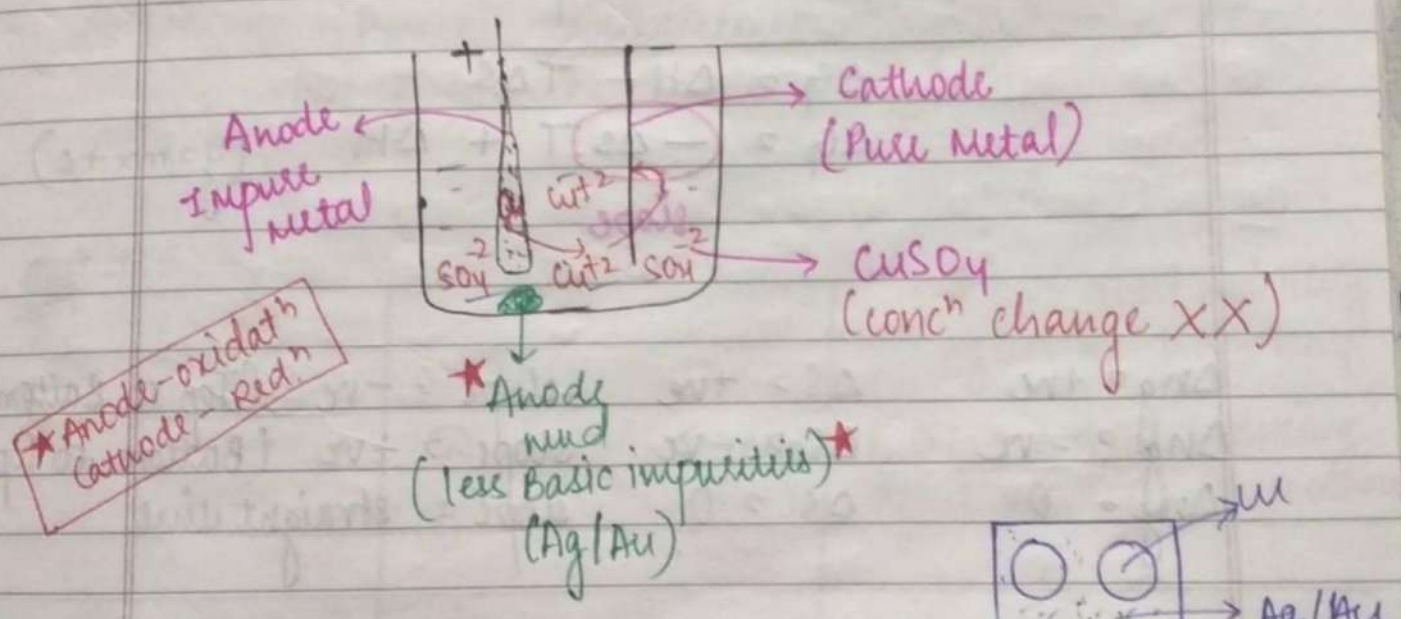 + -
Cathode
(Pure Metal)
Anode
Impure
Metal
Cu+2
SO4-2 Cu+2 SO4-2
CuSO4
(concn change XX)
★ Anode-oxidatn
Cathode - Redn
★ Anode
mud
(less Basic impurities) ★
(Ag/Au)
Ag/Au